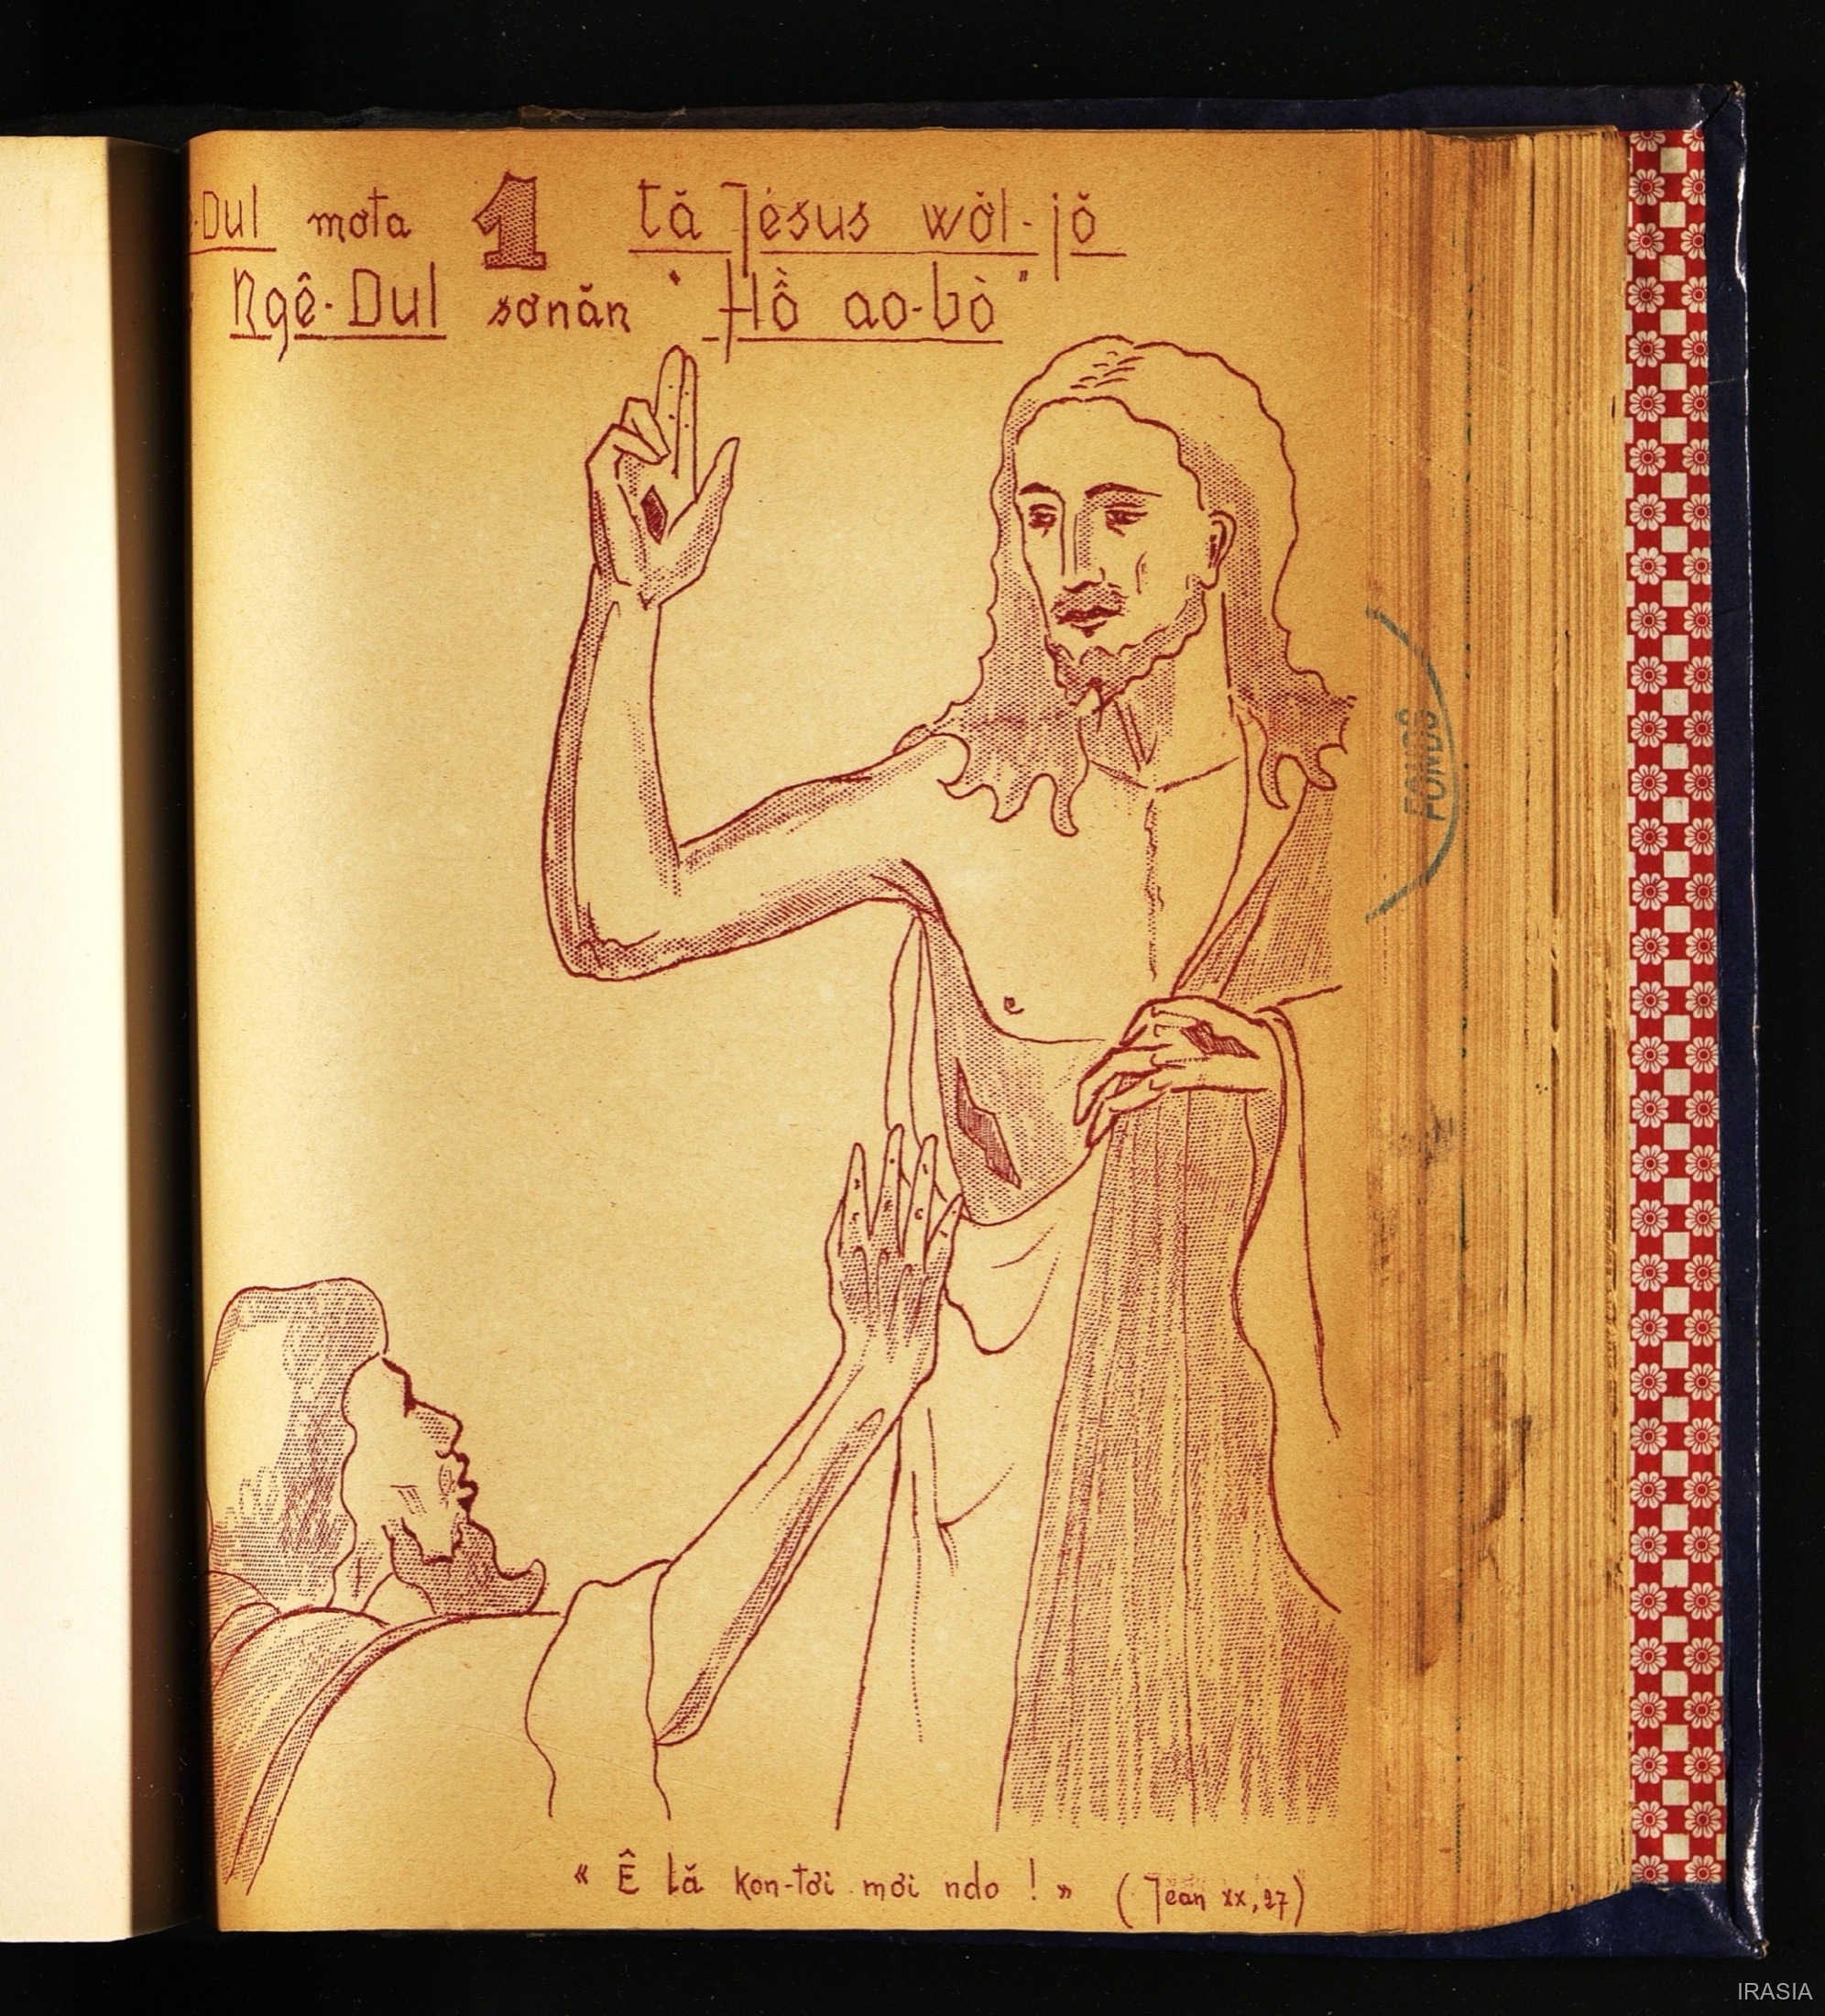 -Dul mơta 1 tă Jésus wơ̆l-jŏ
Ngê-Dul sơnăn "Hồ ao-bò"
« Ê lă kon-tơi mơi ndo ! » (Jean xx, 27)
FONDS
IRASIA